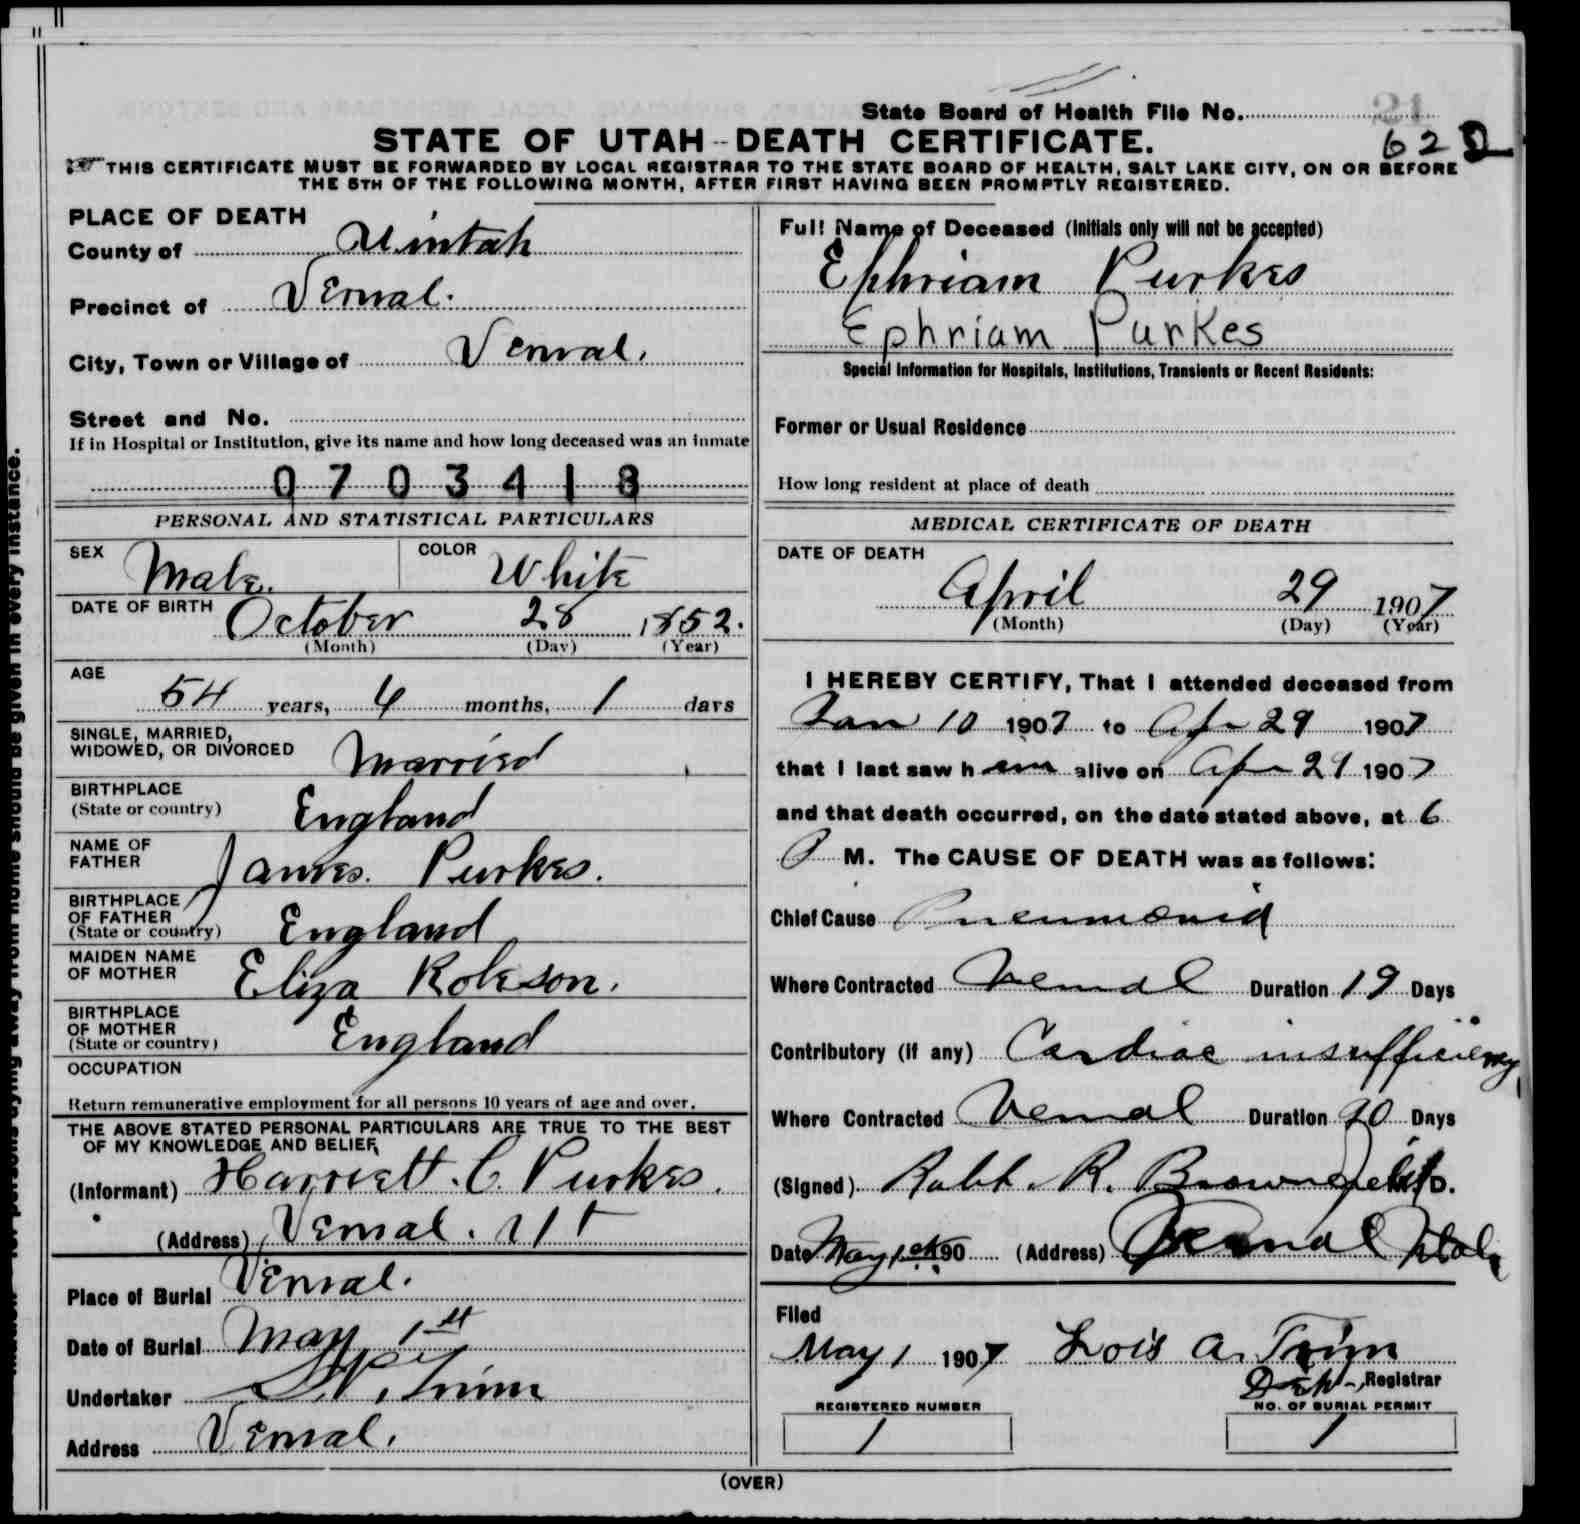 State Board of Health File No.
21
622
STATE OF UTAH--DEATH CERTIFICATE.
THIS CERTIFICATE MUST BE FORWARDED BY LOCAL REGISTRAR TO THE STATE BOARD OF HEALTH, SALT LAKE CITY, ON OR BEFORE
THE 5TH OF THE FOLLOWING MONTH, AFTER FIRST HAVING BEEN PROMPTLY REGISTERED.
PLACE OF DEATH
County of Uintah
Precinct of Vernal.
City, Town or Village of Vernal.
Street and No.
If in Hospital or Institution, give its name and how long deceased was an inmate
0703418
PERSONAL AND STATISTICAL PARTICULARS
SEX Male. COLOR White
DATE OF BIRTH October 28 1852.
(Month) (Day) (Year)
AGE
54 years, 4 months, 1 days
SINGLE, MARRIED,
WIDOWED, OR DIVORCED Married
BIRTHPLACE
(State or country) England
NAME OF
FATHER James. Purkes.
BIRTHPLACE
OF FATHER
(State or country) England
MAIDEN NAME
OF MOTHER Eliza Robeson.
BIRTHPLACE
OF MOTHER
(State or country) England
OCCUPATION
Return remunerative employment for all persons 10 years of age and over.
THE ABOVE STATED PERSONAL PARTICULARS ARE TRUE TO THE BEST
OF MY KNOWLEDGE AND BELIEF,
(Informant) Harriett. C. Purkes.
(Address) Vernal. Ut
Place of Burial Vernal.
Date of Burial May 1st
Undertaker Trim
Address Vernal.
Full Name of Deceased (Initials only will not be accepted)
Ephriam Purkes
Ephriam Purkes
Special Information for Hospitals, Institutions, Transients or Recent Residents:
Former or Usual Residence
How long resident at place of death
MEDICAL CERTIFICATE OF DEATH
DATE OF DEATH
April 29 1907
(Month) (Day) (Year)
I HEREBY CERTIFY, That I attended deceased from
Jan 10 1907 to Apr 29 1907
that I last saw h im alive on Apr 29 1907
and that death occurred, on the date stated above, at 6
P M. The CAUSE OF DEATH was as follows:
Chief Cause Pneumonia
Where Contracted Vernal Duration 19 Days
Contributory (if any) Cardiac insufficiency
Where Contracted Vernal Duration 90 Days
(Signed) Robt. R. Brownfield M.D.
Date May 1st 190 (Address) Vernal Utah
Filed
May 1 1907 Lois A. Trim
Dep. Registrar
REGISTERED NUMBER
1
NO. OF BURIAL PERMIT
1
(OVER)